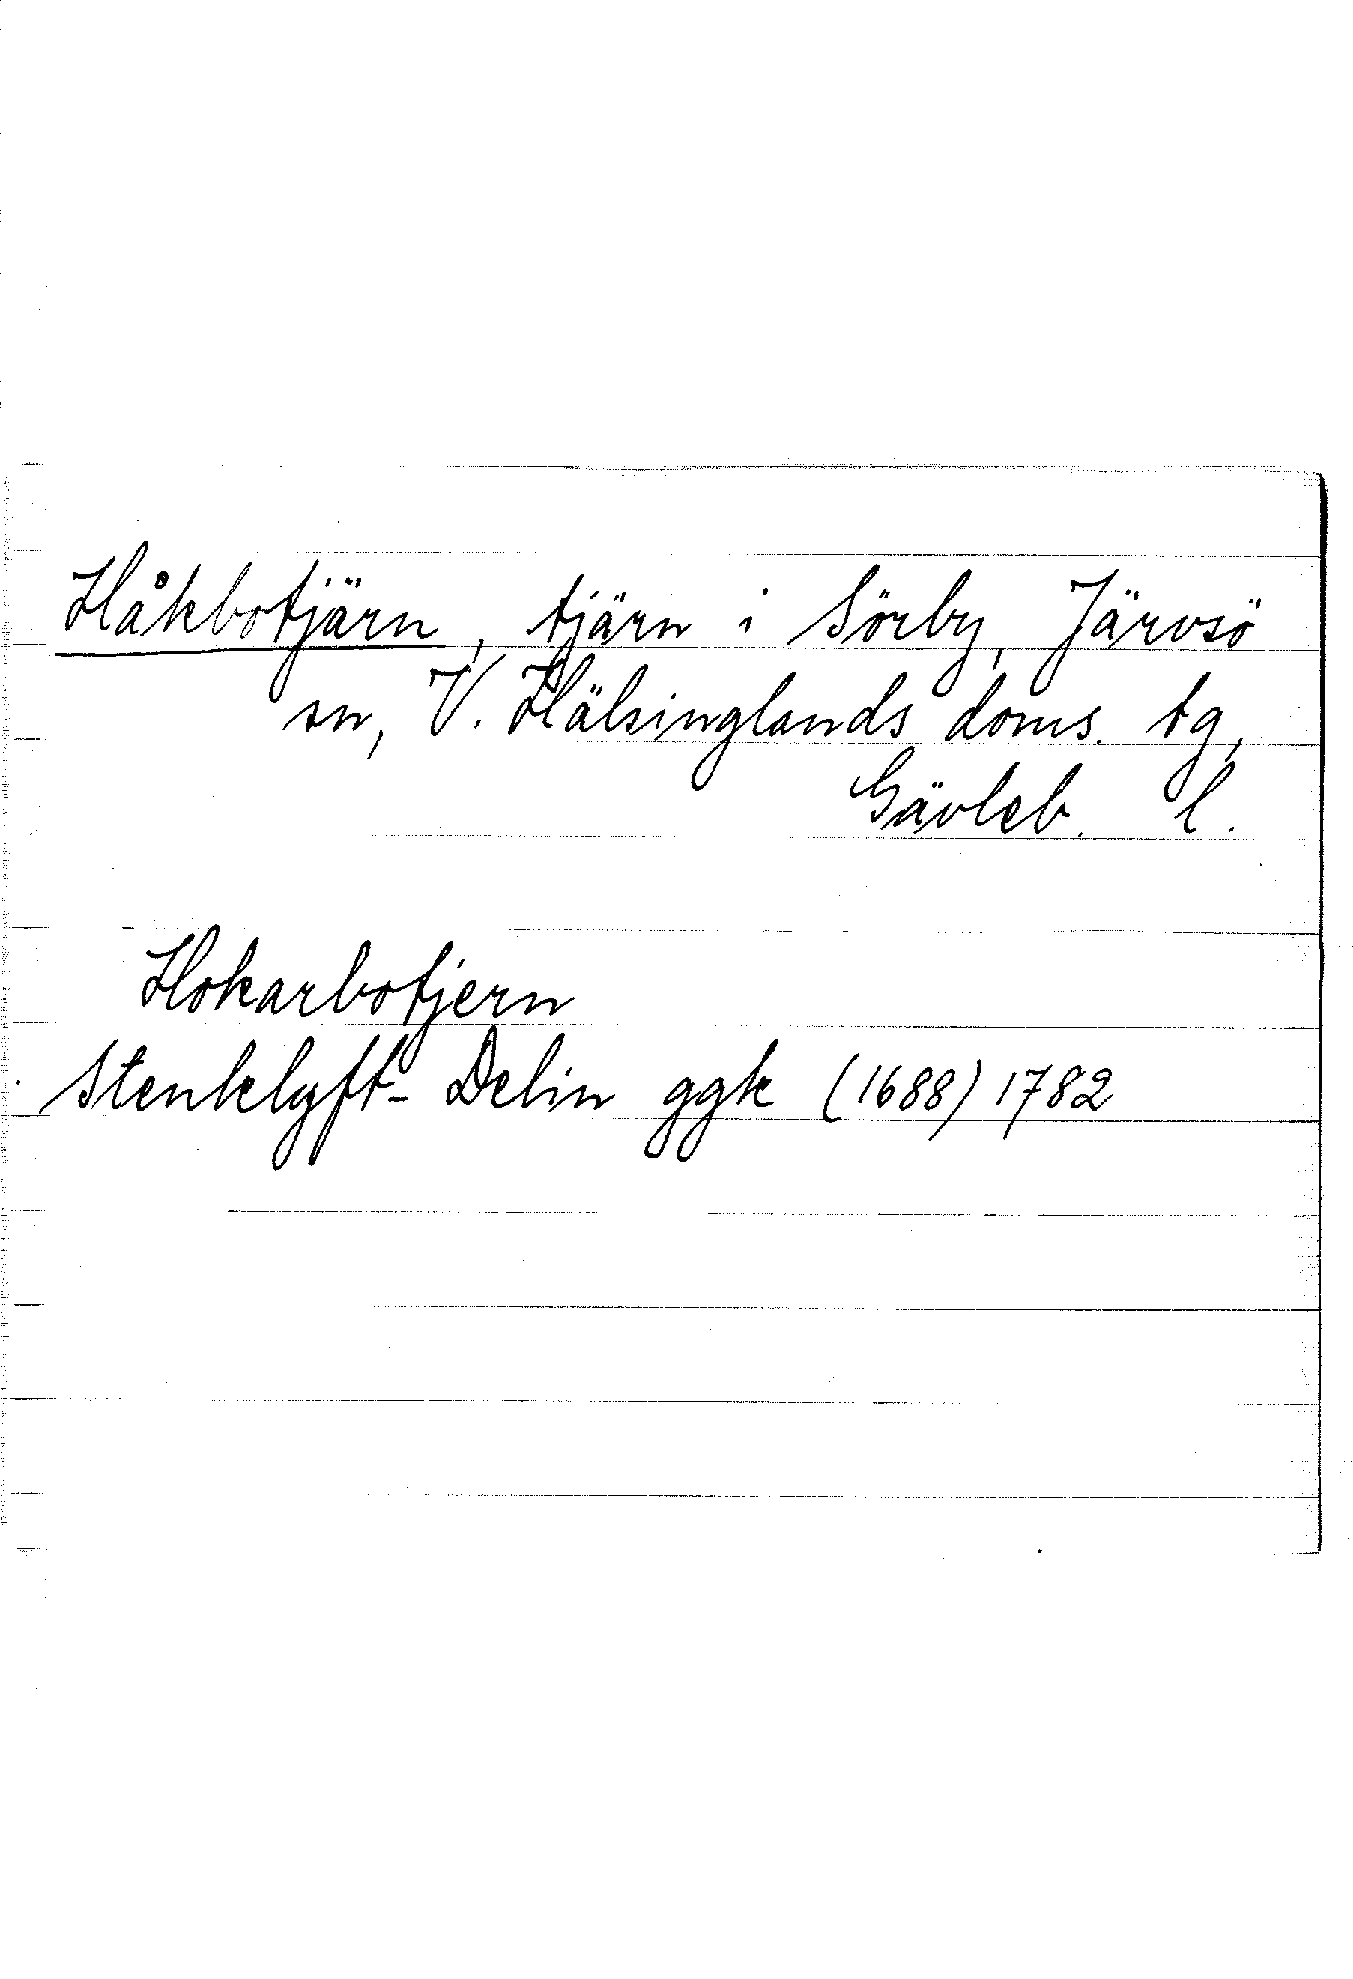 Håkbotjärn, tjärn i Sörby, Järvsö
sn, V. Hälsinglands doms. tg,
Gävleb. l.
Hokarbotjern
Stenklyft- Delin ggk (1688) 1782